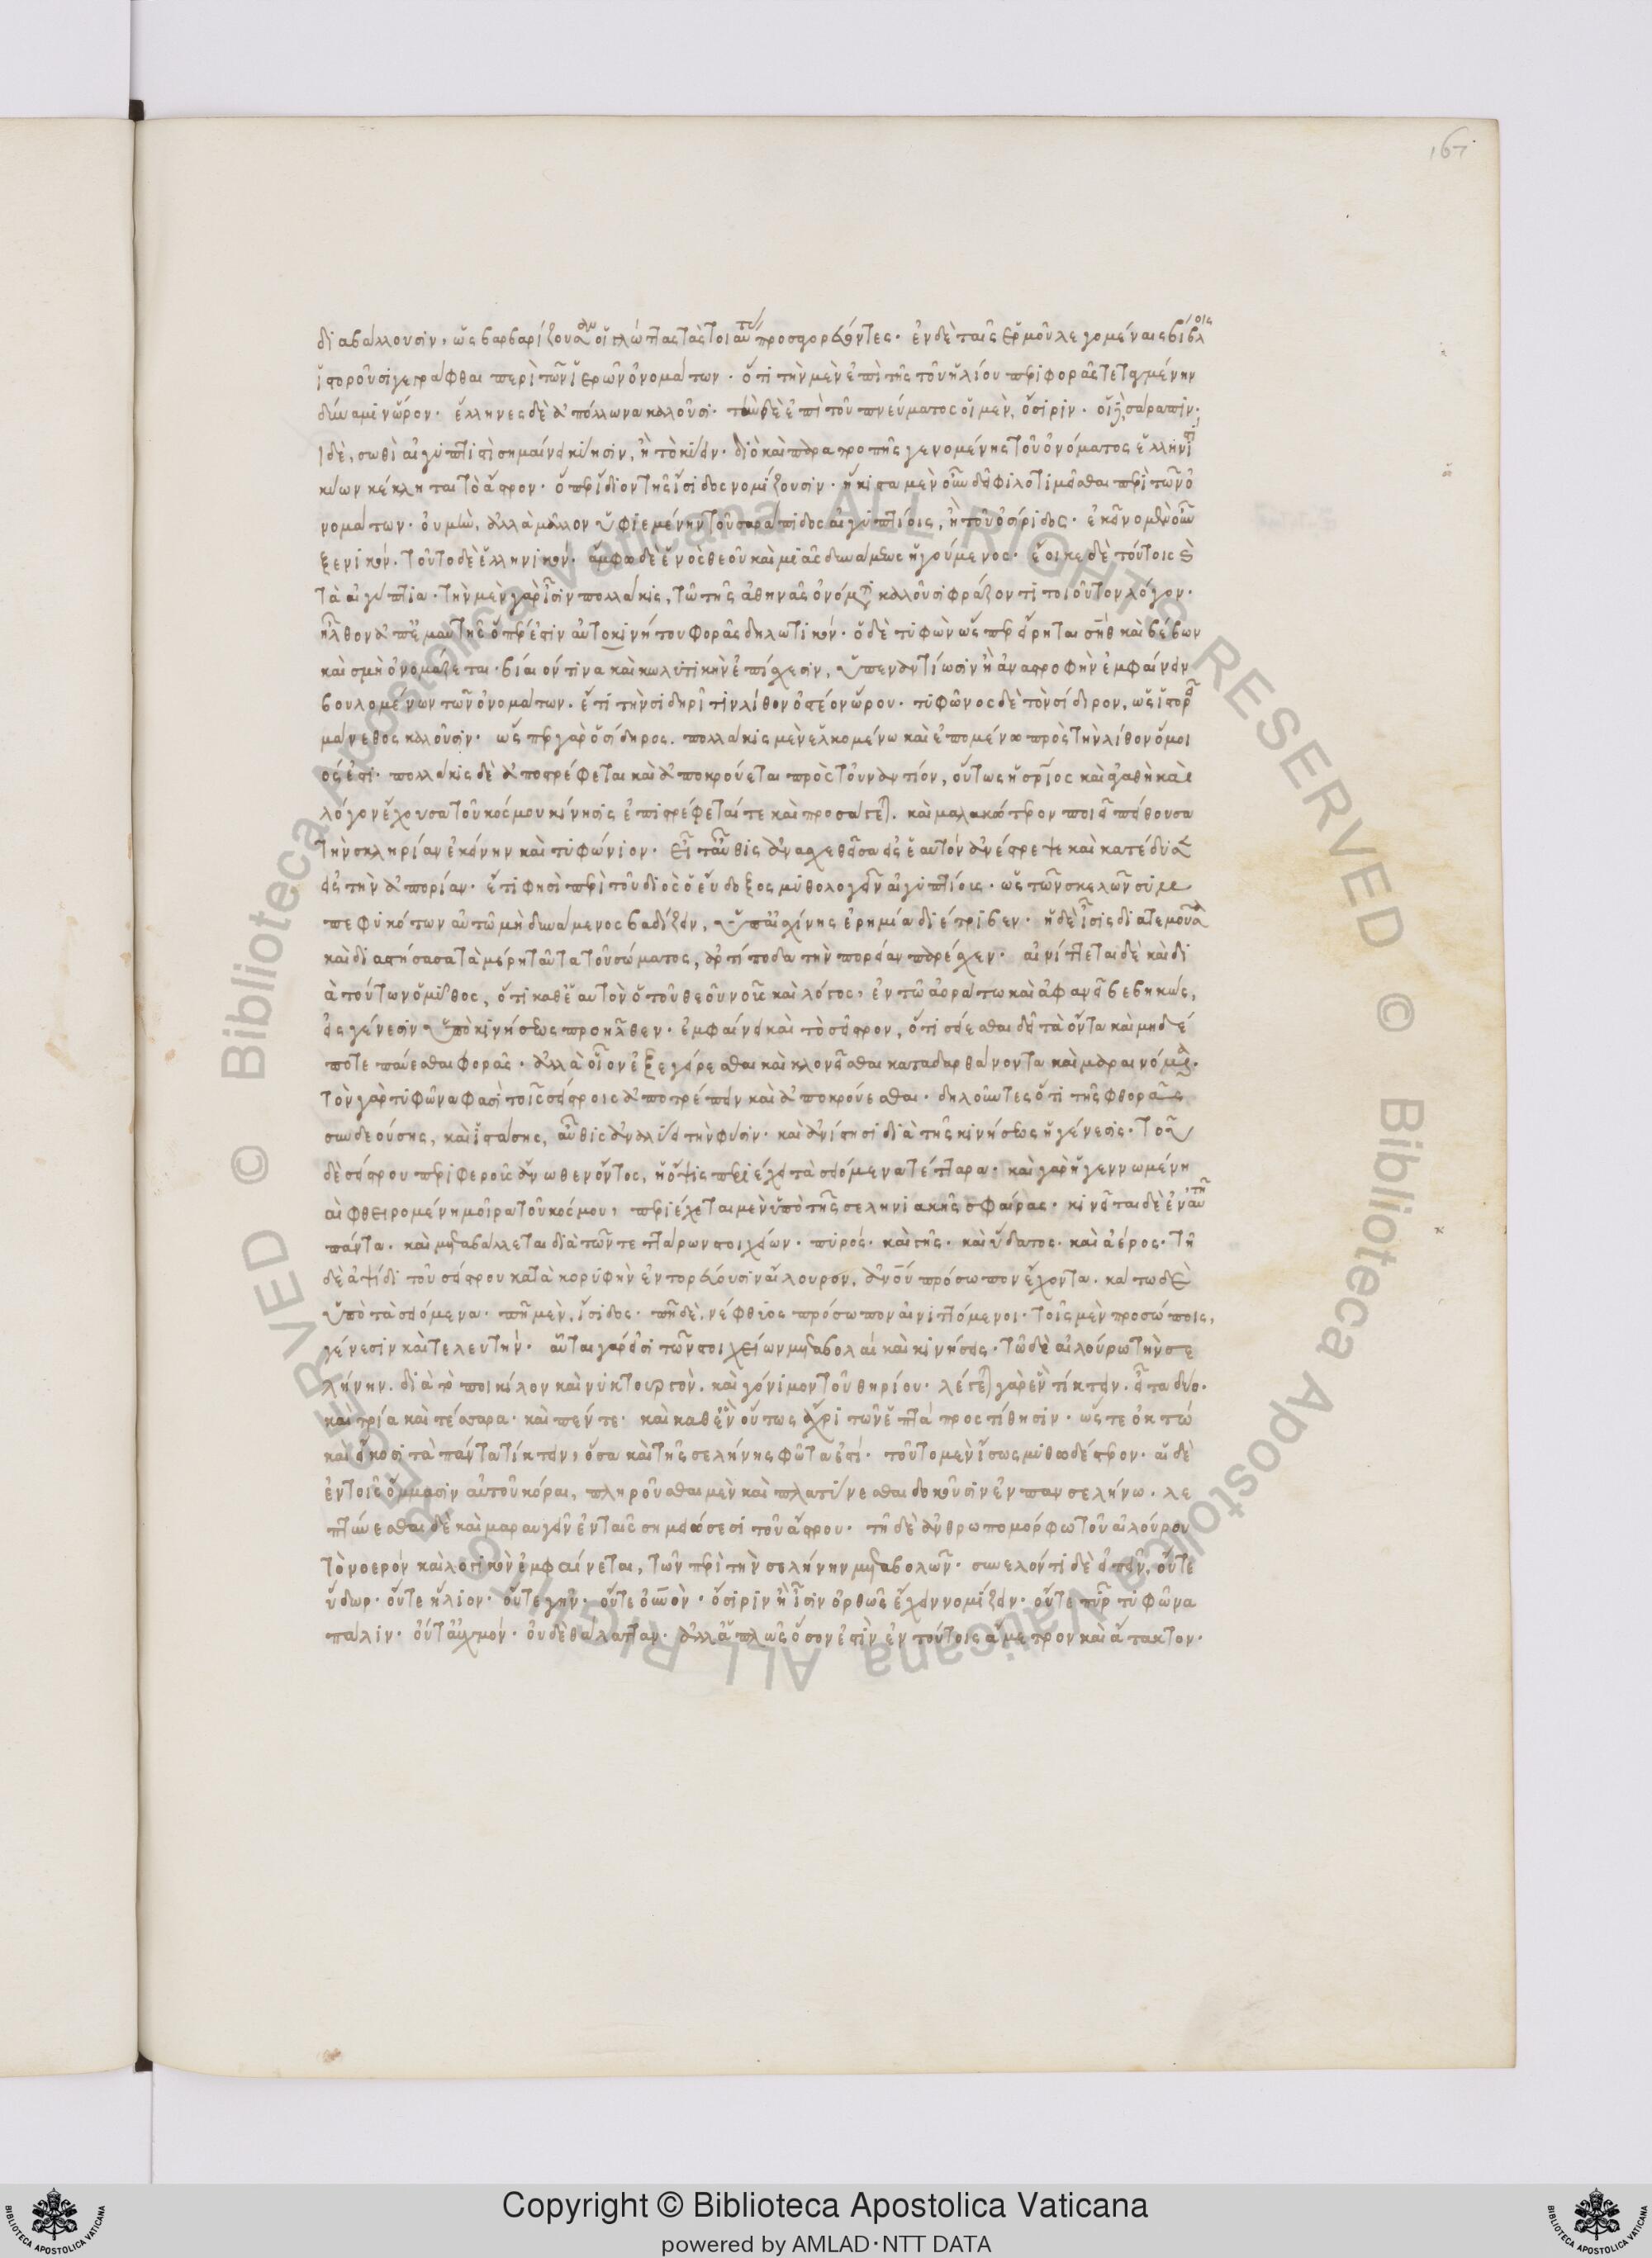 167
διαβάλλουσιν, ὡς βαρβαρίζουσαν οἱ γλώττας τὰς τοιαύτας προσαγορεύοντες. ἐν δὲ ταῖς Ἑρμοῦ λεγομέναις βίβλοις
ἱστοροῦσι γεγράφθαι περὶ τῶν ἱερῶν ὀνομάτων. ὅτι τὴν μὲν ἐπὶ τῆς τοῦ ἡλίου περιφορᾶς τεταγμένην
δύναμιν ὧρον. ἕλληνες δὲ ἀπόλλωνα καλοῦσι. τὴν δὲ ἐπὶ τοῦ πνεύματος οἱ μὲν, ὄσιριν. οἱ δὲ, σάραπιν.
ἱ δὲ, σωθὶ αἰγυπτιστὶ σημαίνει κύησιν, ἢ τὸ κύειν. διὸ καὶ παρατροπῆς γενομένης τοῦ ὀνόματος ἑλληνιστὶ
κύων κέκληται τὸ ἄστρον. ὅπερ ἴδιον τῆς ἴσιδος νομίζουσιν. ἥκιστα μὲν οὖν δεῖ φιλοτιμεῖσθαι περὶ τῶν ὀ
νομάτων. οὐ μὴν, ἀλλὰ μᾶλλον ὑφιεμένην τοῦ σαράπιδος αἰγυπτίοις, ἢ τοῦ ὀσίριδος. ἐκεῖνο μὲν οὖν
ξενικόν. τοῦτο δὲ ἑλληνικόν. ἄμφω δὲ ἑνὸς θεοῦ καὶ μιᾶς δυνάμεως ἡγούμενος. ἔοικε δὲ τούτοις καὶ
τὰ αἰγύπτια. τὴν μὲν γὰρ ἶσιν πολλάκις, τῷ τῆς ἀθηνᾶς ὀνόματι καλοῦσι φράζοντι τοιοῦτον λόγον.
ἦλθον ἀπ' ἐμαυτῆς ὅπερ ἐστὶν αὐτοκινήτου φορᾶς δηλωτικόν. ὁ δὲ τυφὼν ὥσπερ εἴρηται σὴθ καὶ βέβων
καὶ σμὴ ὀνομάζεται. βίαιόν τινα καὶ κωλυτικὴν ἐπίσχεσιν, ὑπεναντίωσιν ἢ ἀναστροφὴν ἐμφαίνειν
βουλομένων τῶν ὀνομάτων. ἔτι τὴν σιδηρῖτιν λίθον ὀστέον ὥρου. τυφῶνος δὲ τὸν σίδηρον, ὡς ἱστορεῖ
μάνεθος καλοῦσιν. ὥσπερ γὰρ ὁ σίδηρος. πολλάκις μὲν ἑλκομένῳ καὶ ἑπομένῳ πρὸς τὴν λίθον ὅμοι
ός ἐστι. πολλάκις δὲ ἀποστρέφεται καὶ ἀποκρούεται πρὸς τοὐναντίον, οὕτως ἡ σωτήριος καὶ ἀγαθὴ καὶ
λόγον ἔχουσα τοῦ κόσμου κίνησις ἐπιστρέφεταί τε καὶ προσάγεται. καὶ μαλακώτερον ποιεῖ πείθουσα
τὴν σκληρίαν ἐκείνην καὶ τυφώνιον. εἶτ' αὖθις ἀνασχεθεῖσα εἰς ἑαυτὸν ἀνέστρεψε καὶ κατέδυσεν
εἰς τὴν ἀπορίαν. ἔτι φησὶ περὶ τοῦ διὸς ὁ εὔδοξος μυθολογεῖν αἰγυπτίους. ὡς τῶν σκελῶν συμ
πεφυκότων αὐτῷ μὴ δυνάμενος βαδίζειν, ὑπ' αἰσχύνης ἐρημίᾳ διέτριβεν. ἡ δὲ ἶσις διατεμοῦσα
καὶ διαστήσασα τὰ μέρη ταῦτα τοῦ σώματος, ἀρτίποδα τὴν πορείαν παρέσχεν. αἰνίττεται δὲ καὶ δι
ὰ τούτων ὁ μῦθος, ὅτι καθ' ἑαυτὸν ὁ τοῦ θεοῦ νοῦς καὶ λόγος, ἐν τῷ ἀοράτῳ καὶ ἀφανεῖ βεβηκώς,
εἰς γένεσιν ὑπὸ κινήσεως προῆλθεν. ἐμφαίνει καὶ τὸ σεῖστρον, ὅτι σείεσθαι δεῖ τὰ ὄντα καὶ μηδέ
ποτε παύεσθαι φορᾶς. ἀλλὰ οἷον ἐξεγείρεσθαι καὶ κλονεῖσθαι καταδαρθάνοντα καὶ μαραινόμενα.
τὸν γὰρ τυφῶνα φασὶ τοῖς σείστροις ἀποτρέπειν καὶ ἀποκρούεσθαι. δηλοῦντες ὅτι τῆς φθορᾶς
συνδεούσης, καὶ ἱστάσης, αὖθις ἀναλύει τὴν φύσιν. καὶ ἀνίστησι διὰ τῆς κινήσεως ἡ γένεσις. τοῦ
δὲ σείστρου περιφεροῦς ἄνωθεν ὄντος, ἡ ἁψὶς περιέχει τὰ σειόμενα τέτταρα. καὶ γὰρ ἡ γεννωμένη
καὶ φθειρομένη μοῖρα τοῦ κόσμου, περιέχεται μὲν ὑπὸ τῆς σεληνιακῆς σφαίρας. κινεῖται δὲ ἐν αὐτῇ
πάντα. καὶ μεταβάλλεται διὰ τῶν τεττάρων στοιχείων. πυρός. καὶ γῆς. καὶ ὕδατος. καὶ ἀέρος. τῇ
δὲ ἁψίδι τοῦ σείστρου κατὰ κορυφὴν ἐντορεύουσιν αἴλουρον, ἀνθρώπου πρόσωπον ἔχοντα. κάτω δὲ
ὑπὸ τὰ σειόμενα. πῆ μὲν, ἴσιδος. πῆ δὲ, νέφθυος πρόσωπον αἰνιττόμενοι. τοῖς μὲν προσώποις,
γένεσιν καὶ τελευτήν. αὗται γάρ εἰσι τῶν στοιχείων μεταβολαὶ καὶ κινήσεις. τῷ δὲ αἰλούρῳ τὴν σε
λήνην. διὰ τὸ ποικίλον καὶ νυκτουργὸν. καὶ γόνιμον τοῦ θηρίου. λέγεται γὰρ ἓν τίκτειν. εἶτα δύο.
καὶ τρία καὶ τέσσαρα. καὶ πέντε. καὶ καθ' ἓν οὕτως ἄχρι τῶν ἑπτὰ προστίθησιν. ὥστε ὀκτώ
καὶ εἴκοσι τὰ πάντα τίκτειν, ὅσα καὶ τῆς σελήνης φῶτα ἐστί. τοῦτο μὲν ἴσως μυθωδέστερον. αἱ δὲ
ἐν τοῖς ὄμμασιν αὐτοῦ κόραι, πληροῦσθαι μὲν καὶ πλατύνεσθαι δοκοῦσιν ἐν πανσελήνῳ. λε
πτύνεσθαι δὲ καὶ μαραυγεῖν ἐν ταῖς σημειώσεσι τοῦ ἄστρου. τῇ δὲ ἀνθρωπομόρφῳ τοῦ αἰλούρου
τὸ νοερὸν καὶ λογικὸν ἐμφαίνεται, τῶν περὶ τὴν σελήνην μεταβολῶν. συνελόντι δὲ εἰπεῖν, οὔτε
ὕδωρ. οὔτε ἥλιον. οὔτε γῆν. οὔτε οὐρανὸν. ὄσιριν ἢ ἶσιν ὀρθῶς ἔχειν νομίζειν. οὔτε πῦρ τυφῶνα
πάλιν. οὔτ' αὐχμόν. οὐδὲ θάλατταν. ἀλλὰ ἁπλῶς ὅσον ἐστὶν ἐν τούτοις ἄμετρον καὶ ἄτακτον.
Copyright © Biblioteca Apostolica Vaticana
powered by AMLAD·NTT DATA